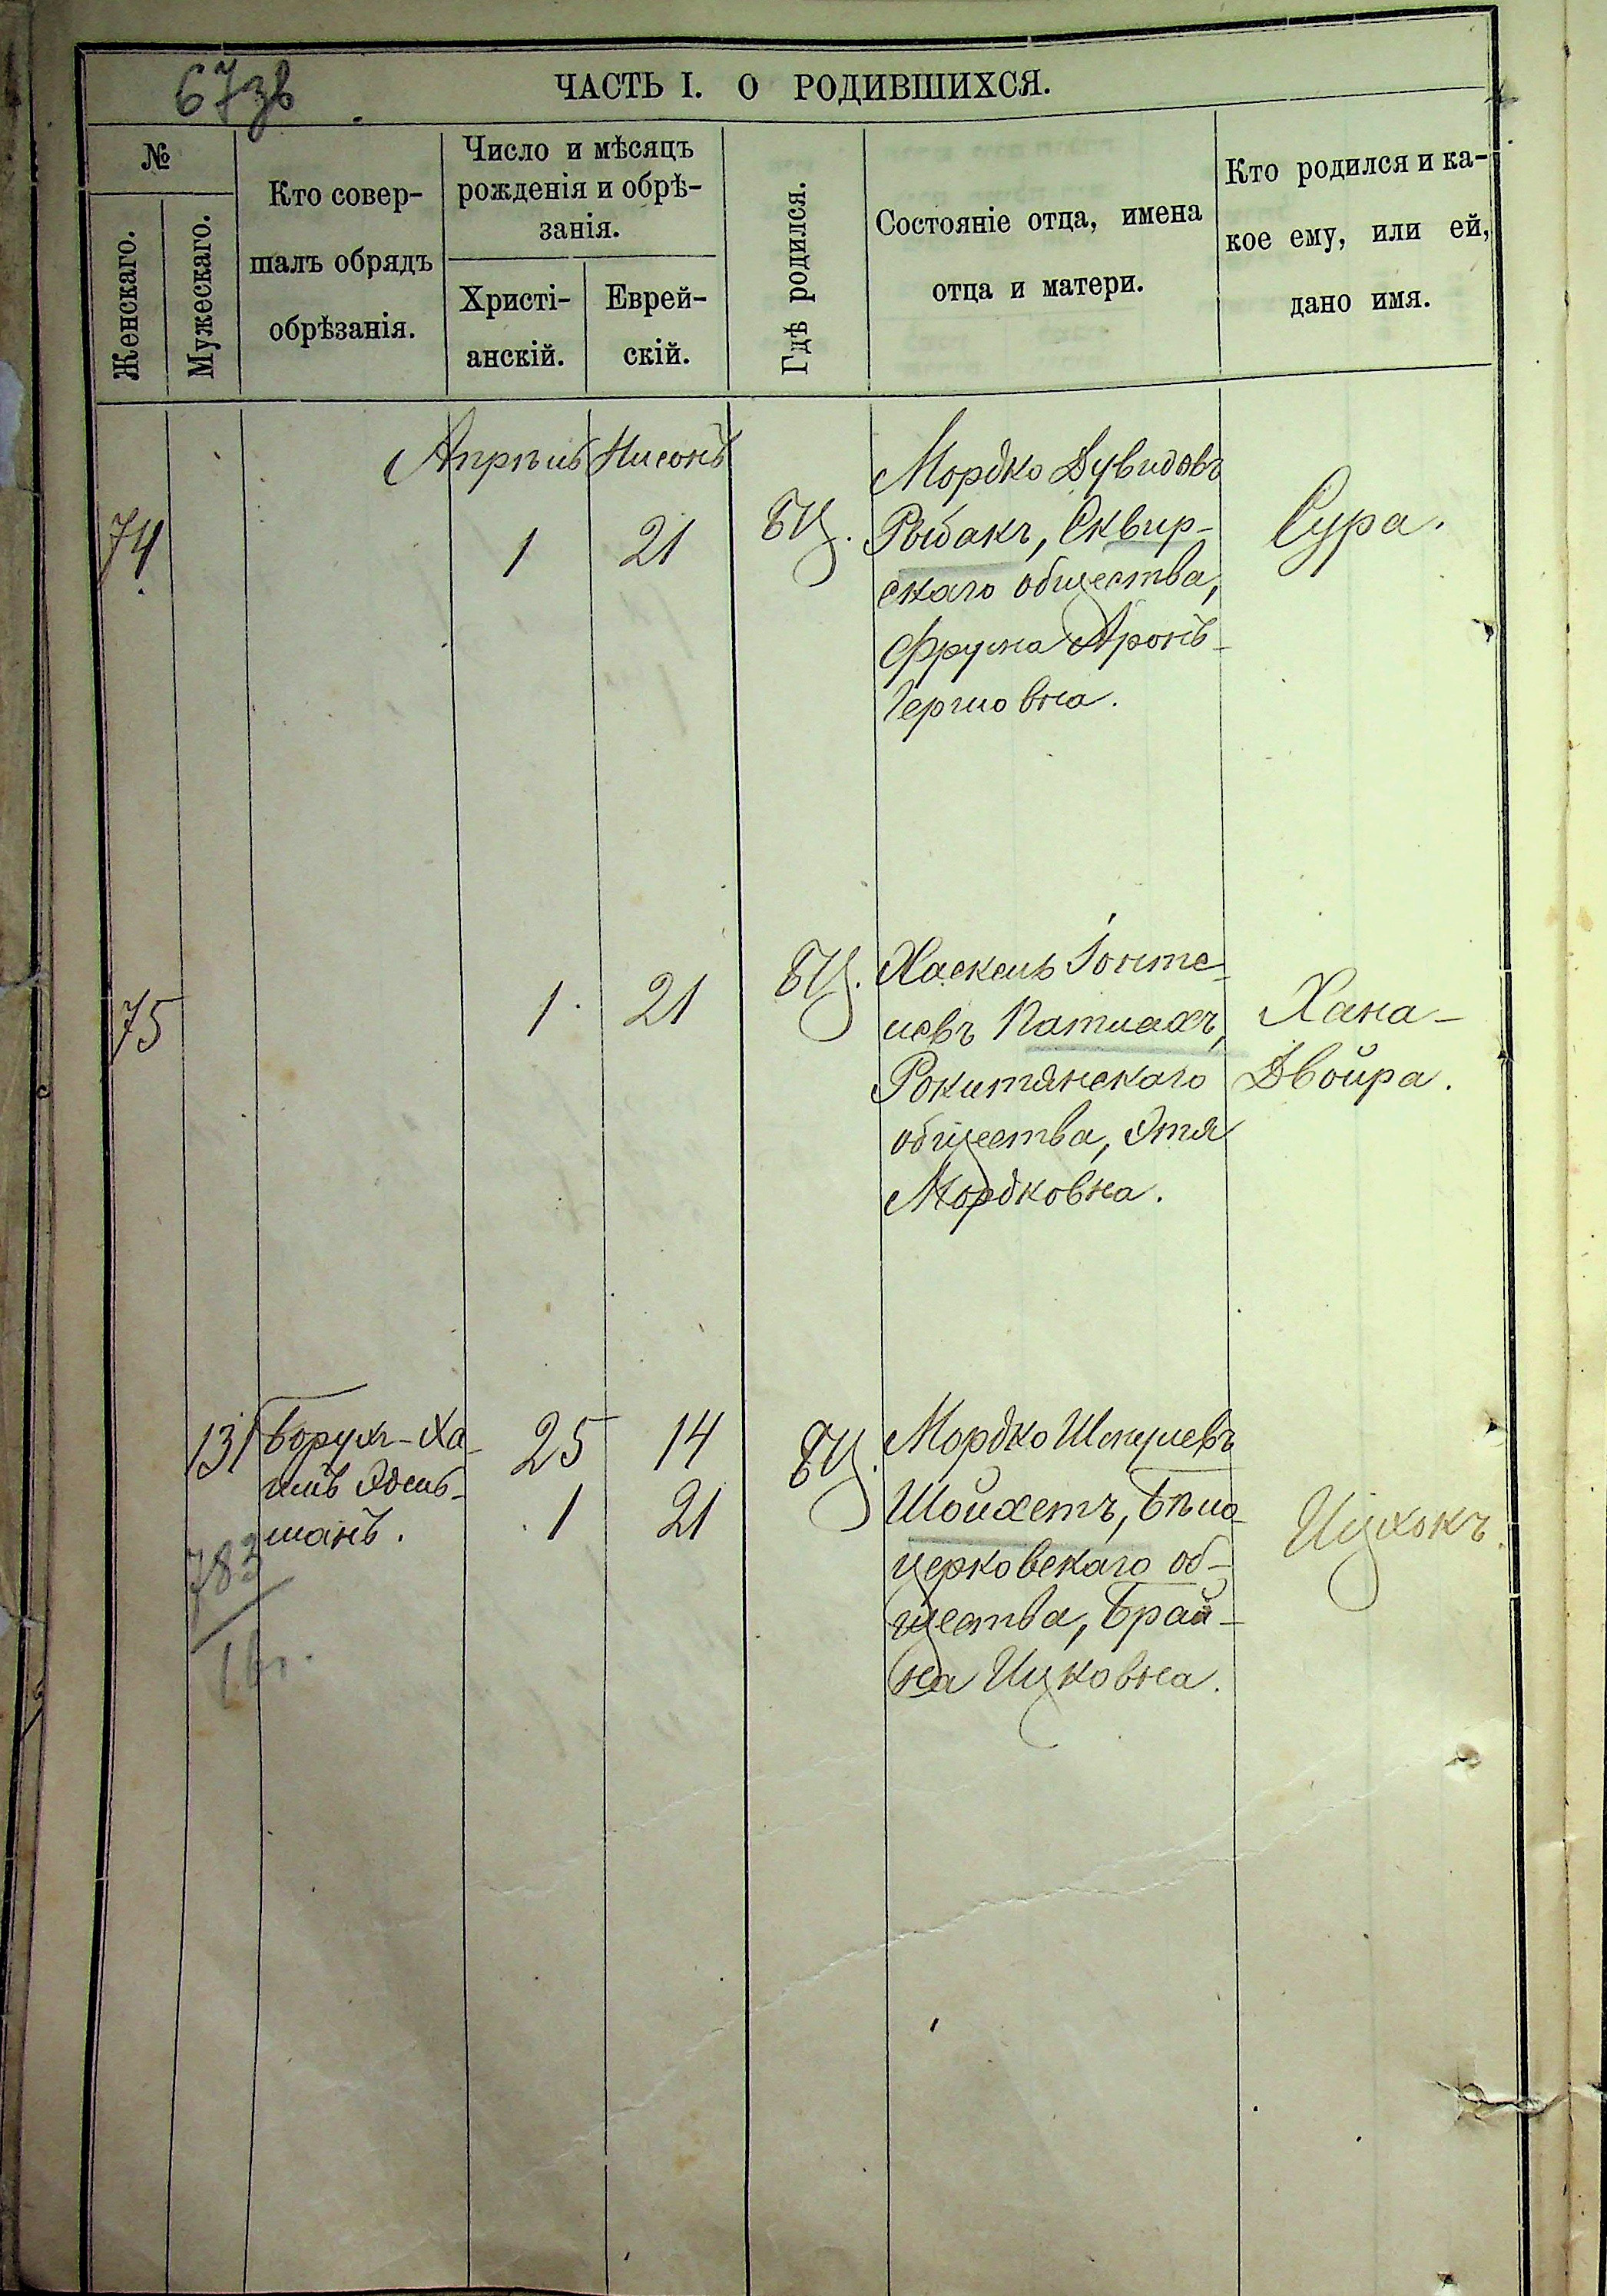 67зв
ЧАСТЬ I. О РОДИВШИХСЯ.
№
Женскаго.
Мужескаго.
Кто совер-
шалъ обрядъ
обрѣзанія.
Число и мѣсяцъ
рожденія и обрѣ-
занія.
Христі-
анскій.
Еврей-
скій.
Гдѣ родился.
Состояніе отца, имена
отца и матери.
Кто родился и ка-
кое ему, или ей,
дано имя.
Апрѣль Нисонъ
74 1 21 БЦ. Мордко Дувидовъ
Рыбакъ, Сквир-
скаго общества,
Фрума Аронъ-
Гершовна.
Сура.
75 1 21 БЦ. Хаскель
Патлахъ,
Рокитянскаго
общества, Этя
Мордковна.
Хана-
Двойра.
131 Борухъ-Ха-
имъ Эдель-
манъ.
25 14
1 21
БЦ. Мордко Шмулевъ
Шойхетъ, Бѣло-
церковскаго об-
щества, Брай-
на Ицковна.
Ицхокъ.
783